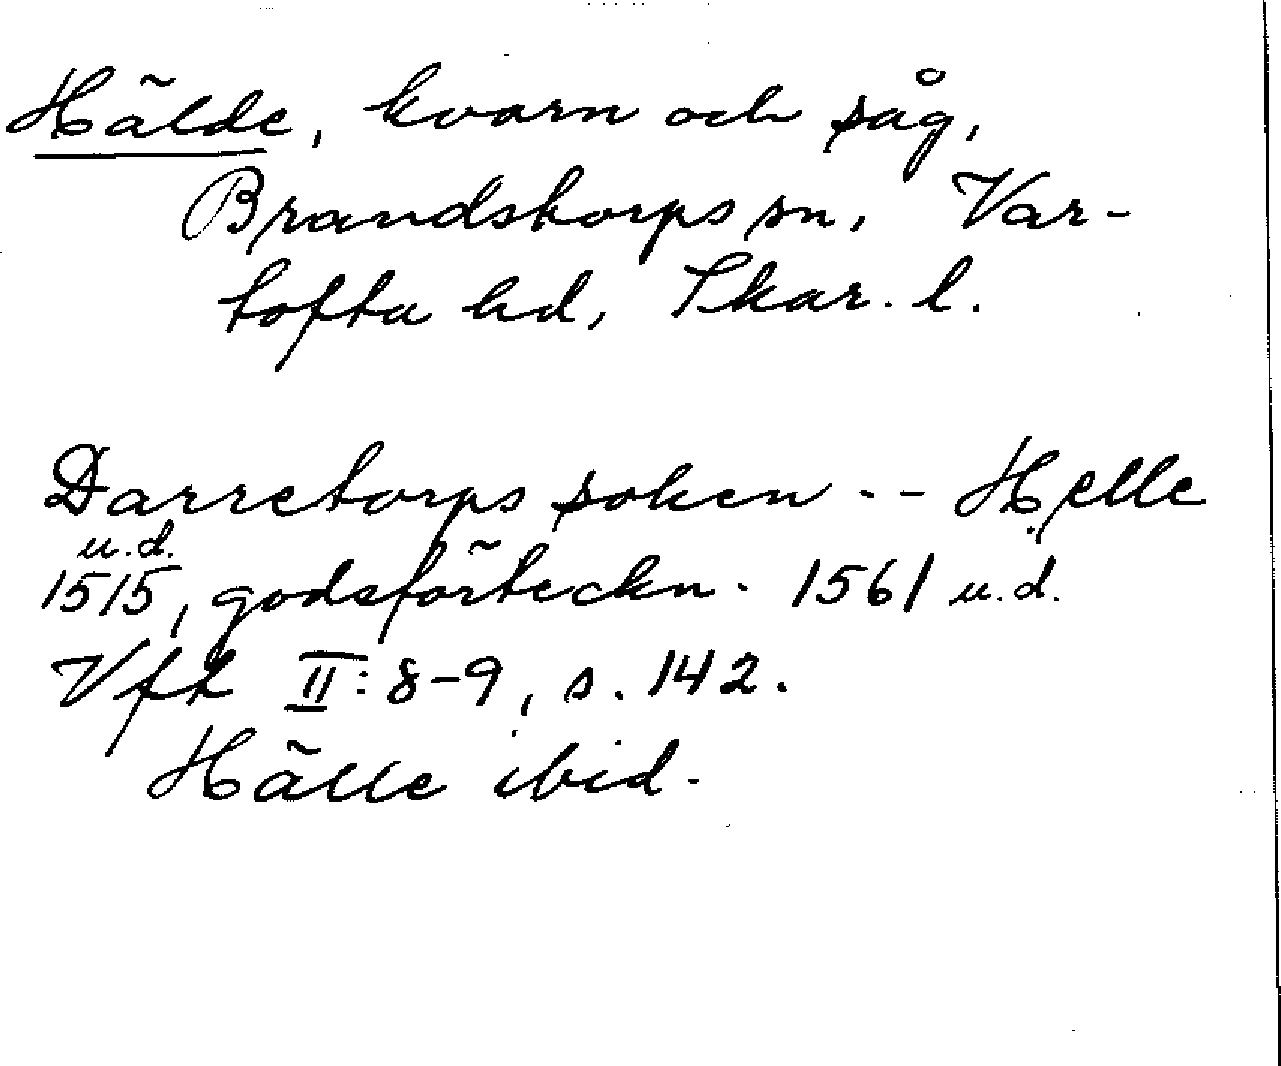 Hälde, kvarn och såg,
Brandstorps sn, Var-
tofta hd, Skar. l.
Darretorps soken -- Helle
u.d.
1515, godsförteckn. 1561 u.d.
Vft II: 8-9, s. 142.
Hälle ibid.